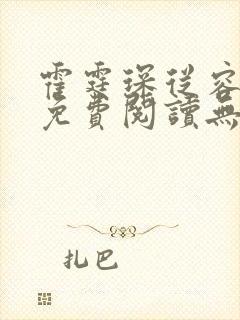 霍霆琛從容
免費閱讀無
扎巴